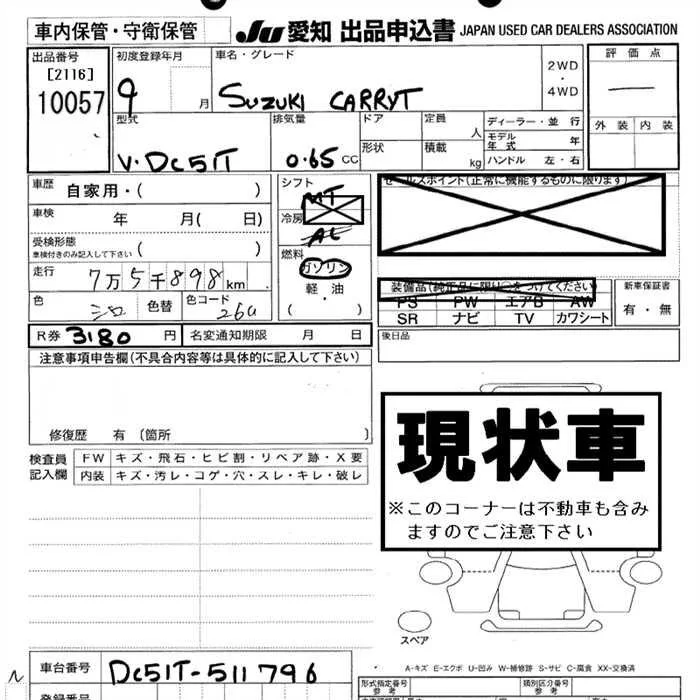 車内保管・守衛保管
JU 愛知 出品申込書 JAPAN USED CAR DEALERS ASSOCIATION
出品番号
[2116]
10057
初度登録年月
9 月
車名・グレード
SUZUKI CARRYT
2WD
・
4WD
評価点
—
外装 内装
型式
V-DC51T
排気量
0.65 CC
ドア
形状
定員
人
積載
kg
ディーラー・並行
モデル年式 年
ハンドル 左・右
車歴 自家用・( )
車検 年 月( 日)
受検形態
車検付きのみ記入して下さい ( )
走行 7万5千898km
色 シロ 色替 色コード 26U
シフト
MT
冷房
AC
燃料
ガソリン
軽・油
( )
セールスポイント(正常に機能するものに限ります)
装備品(純正品に限り○をつけてください)
PS PW エアB AW
SR ナビ TV カワシート
新車保証書
有・無
R券 3180 円 名変通知期限 月 日
後日品
注意事項申告欄(不具合内容等は具体的に記入して下さい)
修復歴 有〔箇所 〕
検査員記入欄
FW キズ・飛石・ヒビ割・リペア跡・X要
内装 キズ・汚レ・コゲ・穴・スレ・キレ・破レ
現状車
※このコーナーは不動車も含み
ますのでご注意下さい
スペア
A-キズ E-エクボ U-凹み W-補修跡 S-サビ C-腐食 XX-交換済
N
車台番号 DC51T-511796
登録番号
形式指定番号
参考
類別区分番号
参考